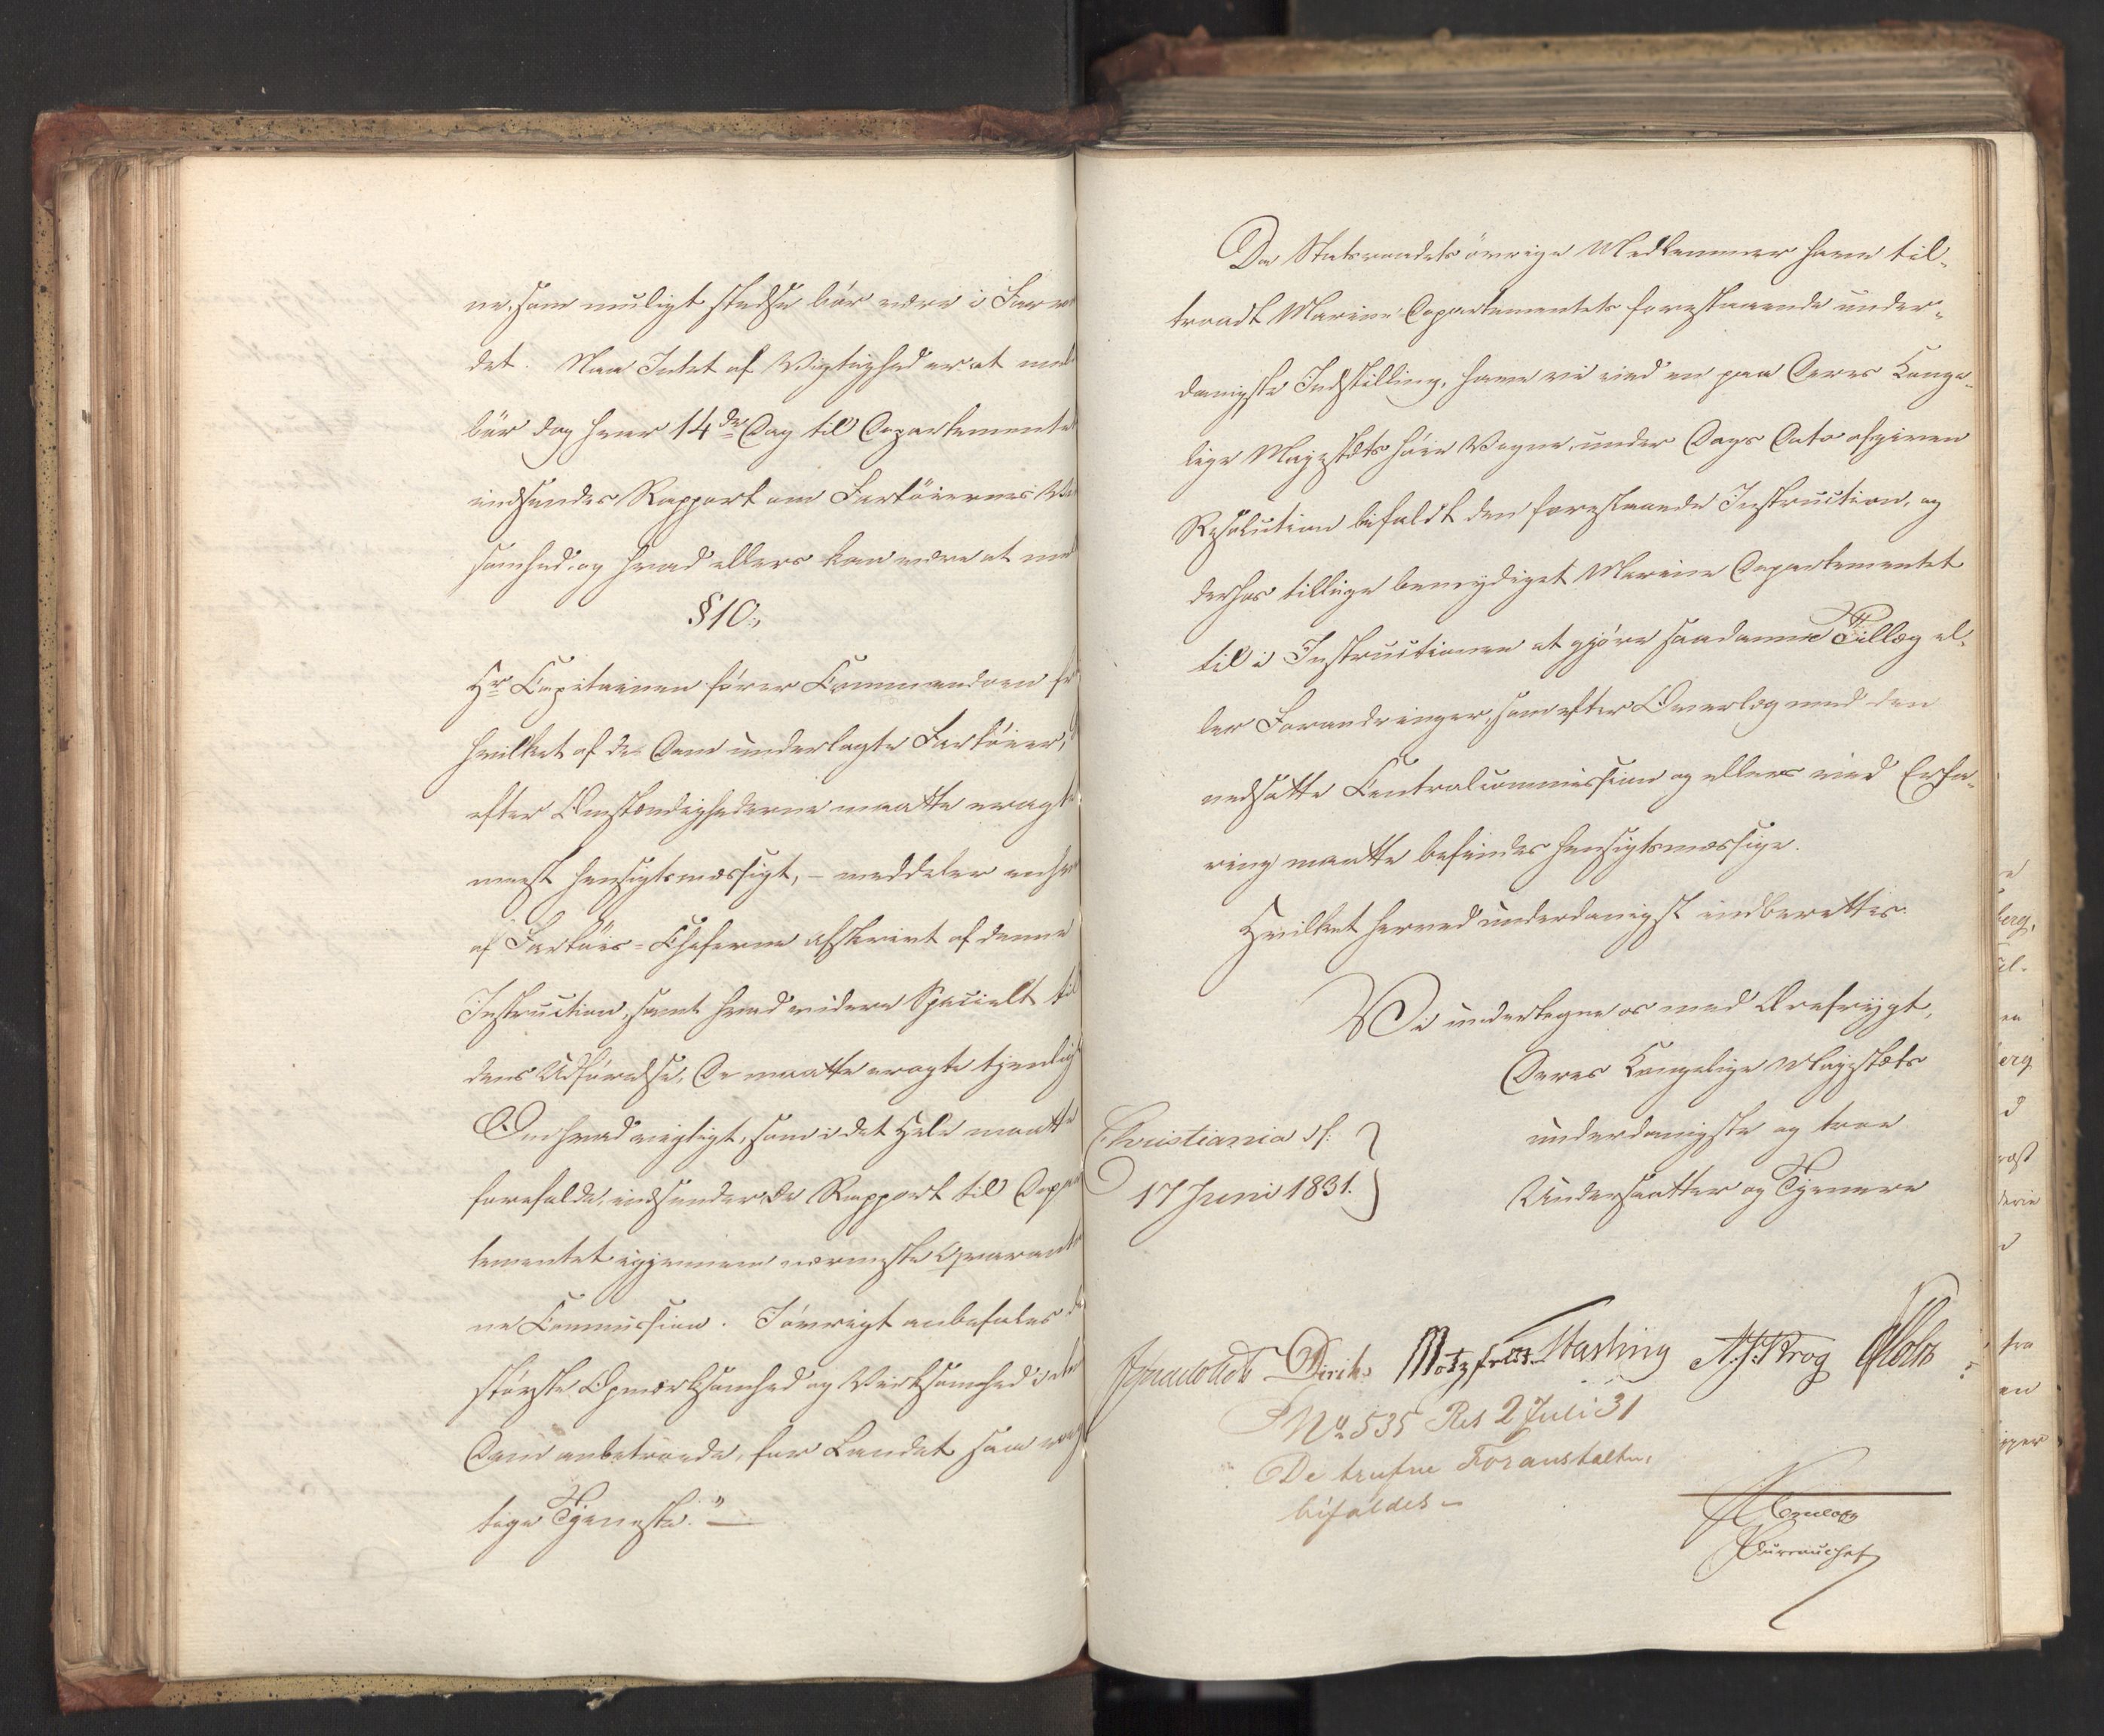 ne, som muligt stedse bör være i Farva
det. Naar Intet af Vigtighed er at mel
bör dog hver 14de Dag til Departemente
indsendes Rapport om Fartöiernes Vi
somhed, og hvad ellers kan være at mel
§ 10.
Hr Capitainen förer Commandoen fr
hvilket af de Dem underlagte Fartöier,
efter Omstændighederne maatte eragte
meest hensigtsmæssigt, – meddeler enhve
af Fartöis-Cheferne Afskrivt af denne
Instruction, samt hvad videre Specielt til
dens Udförelse, De maatte eragte tjenligt
Om hvad vigtigt, som i det Hele maatte
forefalde, indsender De Rapport til Depar
tementet igjennem nærmeste Qvarantai
ne Commission. Iövrigt anbefales
störste Opmærksomhed og Virksomhed i
Dem anbetroede, for Landet saa vig
tige Tjeneste." —
Da Statsraadets övrige Medlemmer have til-
traadt Marine-Departementets forestaaende under-
danigste Indstilling, have vi ved en paa Deres Konge-
lige Majestæts höie Vegne, under Dags Dato afgiven
Resolution bifaldt den forestaaende Instruction, og
derhos tillige bemyndiget Marine Departementet
til i Instructionen at gjöre saadanne Tillæg el-
ler Forandringer, som efter Overlæg med den
nedsatte Centralcommission og ellers ved Erfa-
ring maatte befindes hensigtsmæssige.
Hvilket herved underdanigst indberettes.
Vi undertegne os med Ærefrygt,
Deres Kongelige Majestæts
Christiania d:
underdanigste og troe
17 Juni 1831.
Undersaatter og Tjenere
Diriks Motzfeldt. Fasting A. J. Krog Holst
No 535 Res 2 Juli 31
De trufne Foranstaltn:
bifaldes –
Bureauchef